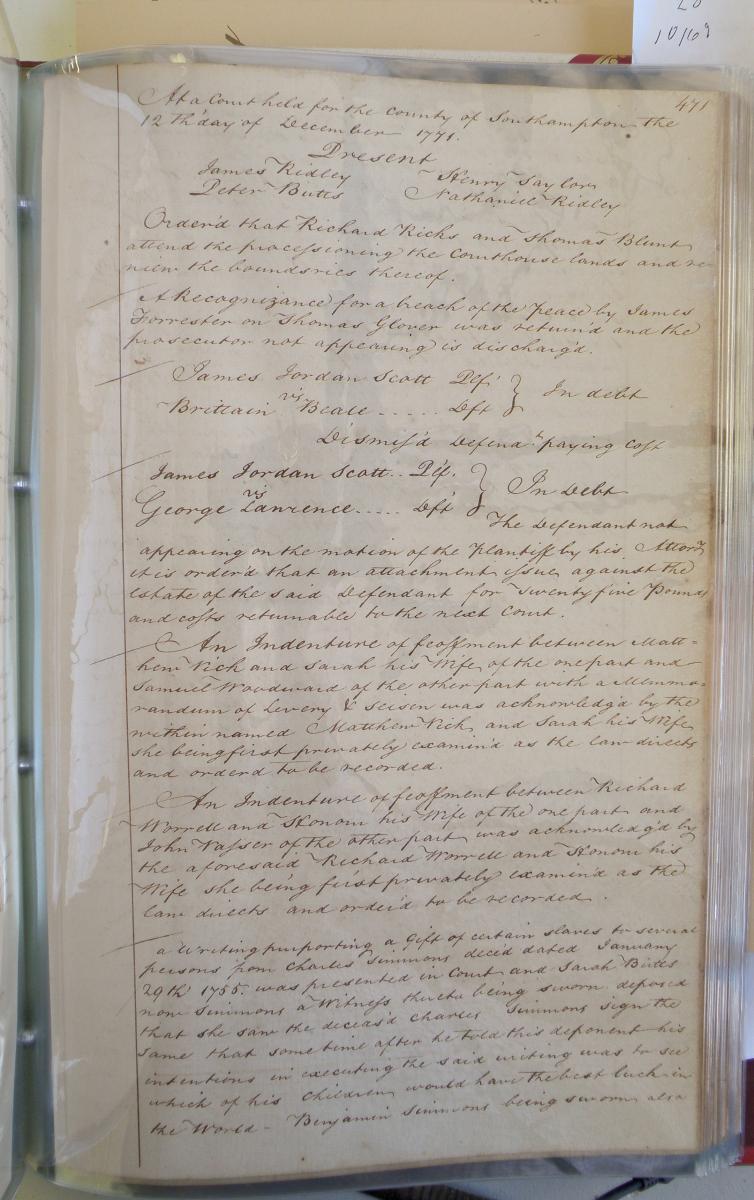 10/69
471
At a Court held for the County of Southampton the
12th day of December 1771.
Present
James Ridley Henry Taylor
Peter Butts Nathaniel Ridley
Order'd that Richard Ricks and Thomas Blunt
attend the processioning the Courthouse lands and re-
niew the boundsries thereof.
A Recognizance for a breach of the Peace by James
Forrester on Thomas Glover was return'd and the
prosecutor not appearing is discharg'd.
James Jordan Scott Plf.
vs In debt
Brittain Beale ..... Dft
Dismiss'd Defendt. paying Cost
James Jordan Scott .. Plf.
vs In Debt
George Lawrence ..... Dft
The Defendant not
appearing on the motion of the Plantiff by his Attorn
it is order'd that an attachment issue against the
Estate of the said Defendant for Twenty five Pounds
and costs returnable to the next Court.
An Indenture of feoffment between Matt=
hew Vich and Sarah his Wife of the one part and
Samuel Woodward of the other part with a Memmo-
randum of Levery & Seisen was acknowledg'd by the
within named Matthew Vich and Sarah his Wife
she being first privately examin'd as the law directs
and order'd to be recorded.
An Indenture of feoffment between Richard
Worrell and Honour his Wife of the one part and
John Vasser of the other part was acknowledg'd by
the aforesaid Richard Worrell and Honour his
Wife she being first privately examin'd as the
law directs and order'd to be recorded.
a Writing purporting a Gift of certain slaves to several
persons from Charles Simmons deced dated January
29th 1755. was presented in Court and Sarah Butts
now Simmons a Witness thereto being sworn deposed
that she saw the deceas'd Charles Simmons sign the
same that sometime after he told this deponent his
intentions in executing the said writing was to see
which of his Children would have the best luck in
the World - Benjamin Simmons being sworn also